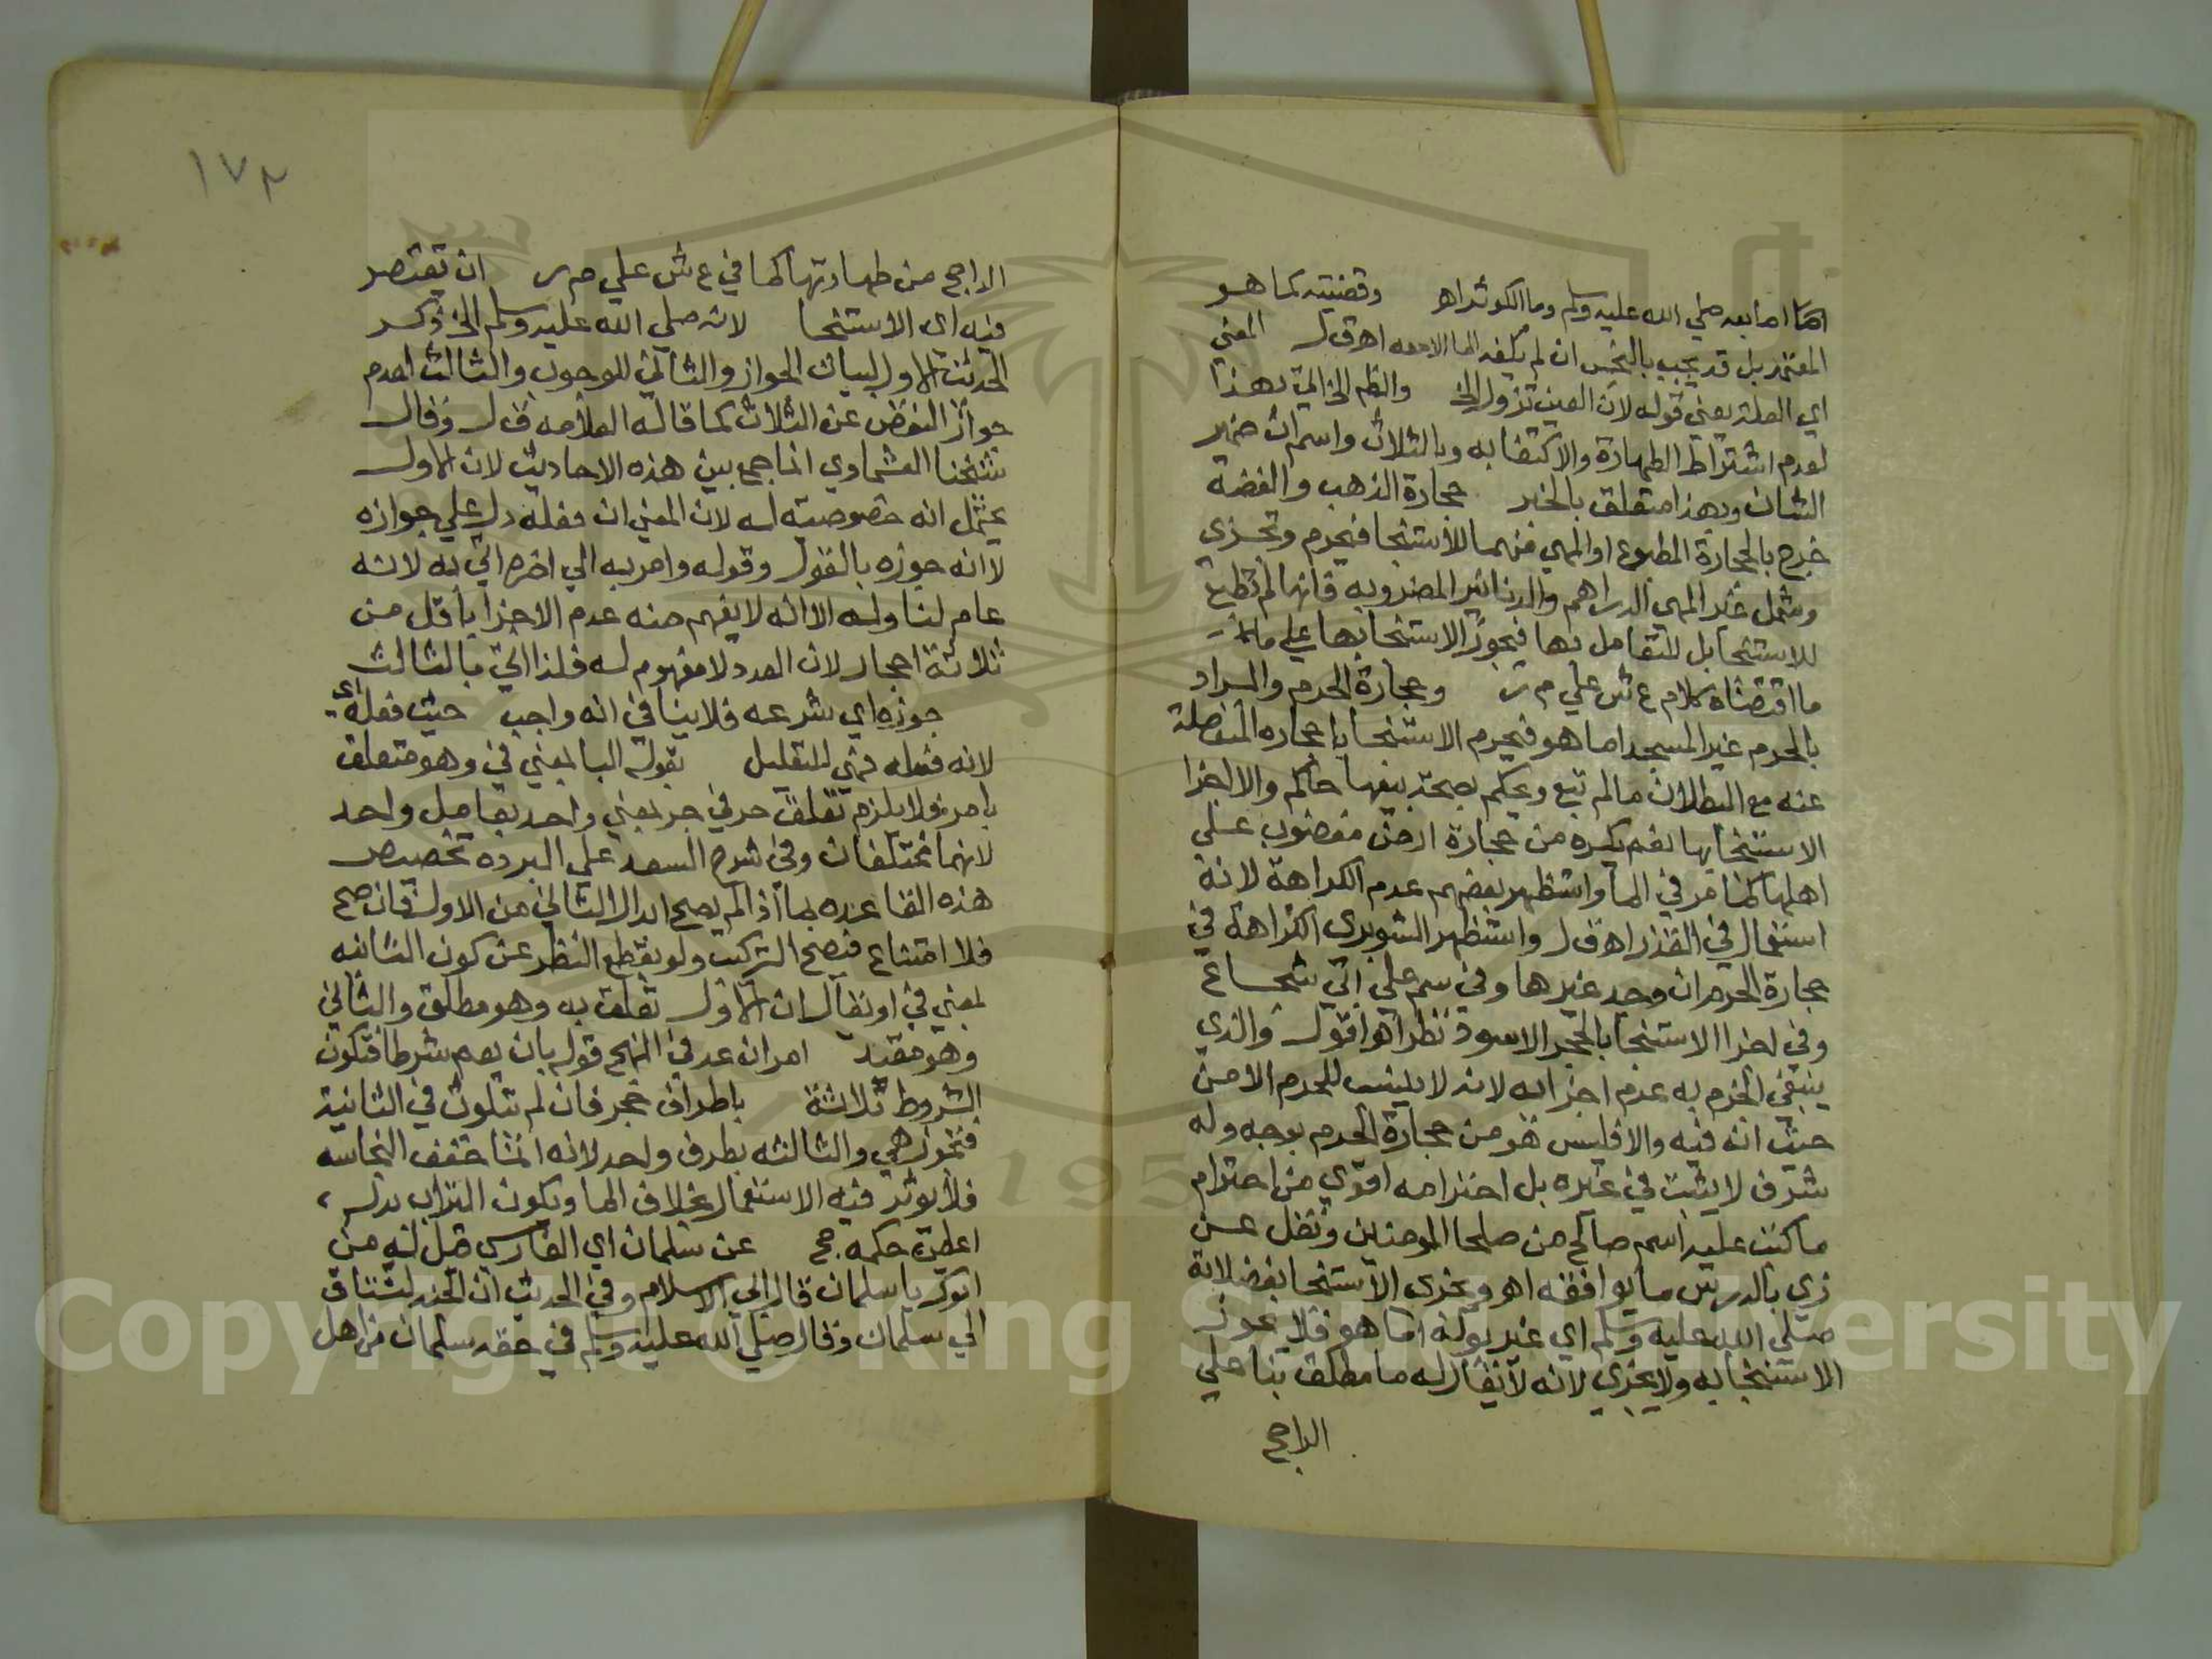 اصابعه صلي الله عليه وسلم وما الكوثر اهـ وقضيته كما هو
المعتمد بل قد يجب بالنجس ان لم يكفه الما الا معه اهـ ق ل المعني
اي العلة يعني قوله لان العين تزول الخ والظم الخ اتي بهذا
لعدم اشتراط الطهارة والاكتفا به وبالثلاث واسم ان ضمير
الشان وبهذا متعلق بالخبر حجارة الذهب والفضة
خرج بالحجارة المطبوع او المهيي منهما للاستنجا فيحرم وتجزي
وشمل غير المهيي الدراهم والدنانير المضروبه فانها لم تطبع
للاستنجا بل للتعامل بها فيجوز الاستنجا بها علي
ما اقتضاه كلام ع ش علي م ر وحجارة الحرم والمراد
بالحرم غير المسجد اما هو فيحرم الاستنجا باحجاره المنفصلة
عنه مع البطلان مالم تبع ويحكم بصحة بيعها حاكم والا اجزا
الاستنجا بها نعم يكره من حجارة ارض مغضوب علي
اهلها كما مر في الما واستظهر بعضهم عدم الكراهة لانه
استعمال في القذر اهـ ق ل واستظهر الشوبري الكراهة في
حجارة الحرم ان وجد غيرها وفي سم علي ابي شجاع
وفي اجزا الاستنجا بالحجر الاسود نظر اهـ اقول والذي
ينبغي الجزم به عدم اجزائه لانه لا ينسب للحرم الا من
حيث انه فيه والا فليس هو من حجارة الحرم بوجه وله
شرف لا يثبت في غيره بل احترامه اقوي من احترام
ما كتب عليه اسم صالح من صلحا المومنين ونقل عن
زي بالدرس ما يوافقه اهـ ويجزي الاستنجا بفضلاته
صلي الله عليه وسلم اي غير بوله اما هو فلا يجوز
الاستنجا به ولا يجزي لانه لا يقال له ما مطلق بنا علي
الراجح
١٧٢
الراجح من طهارتها كما في ع ش علي م ر ان يقتصر
فيه اي الاستنجا لانه صلي الله عليه وسلم الخ ذكر
الحديث الاول لبيان الجواز والثاني للوجوب والثالث لعدم
جواز النقض عن الثلاث كما قاله العلامه ق ل وقال
شيخنا العشماوي انما جمع بين هذه الاحاديث لان الاول
يحتمل انه خصوصيته له لان المعني ان فعله دل علي جوازه
لا انه جوزه بالقول وقوله وامر به الي اخره اتي به لانه
عام لنا وله الا انه لا يفهم منه عدم الاجزا باقل من
ثلاثة احجار لان العدد لا مفهوم له فلذا اتي بالثالث
جوزه اي شرعه فلا ينافي انه واجب حيث فعله اي
لانه فعله فهي للتعليل بقوله البا بمعني في وهو متعلق
بامر ولا يلزم تعلق حرفي جر بمعني واحد بعامل واحد
لانهما مختلفان وفي شرح السعد علي البرده تخصيص
هذه القاعده بما اذا لم يصح ابدال الثاني من الاول فان صح
فلا امتناع فصح التركيب ولو بقطع النظر عن كون الثانيه
بمعني في او يقال ان الاول تعلق به وهو مطلق والثاني
وهو مقيد امران عد في المنهج قوله بان يعم شرطا فتكون
الشروط ثلاثة باطراف حجر فان لم تتلوث في الثانية
فتجوز هي والثالثه بطرف واحد لانه انما خفف النجاسه
فلا يوثر فيه الاستعمال بخلاف الما ويكون التراب بدله
اعطي حكمه حج عن سلمان اي الفارسي قيل له من
ابوك يا سلمان قال ابي الاسلام وفي الحديث ان الجنه لتشتاق
الي سلمان وقال صلي الله عليه وسلم في حقه سلمان من اهل
Copyright © King Saud University
195